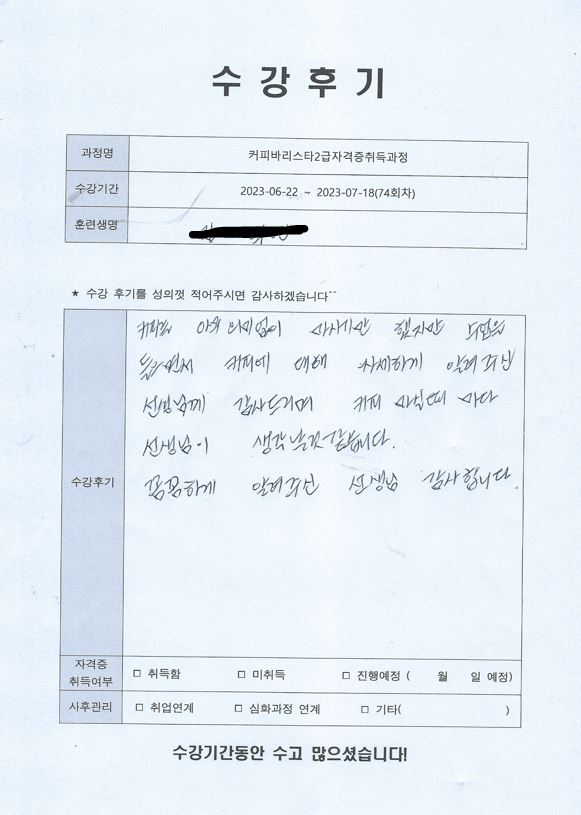 수강후기
과정명 커피바리스타2급자격증취득과정
수강기간 2023-06-22 ~ 2023-07-18(74회차)
훈련생명
★ 수강 후기를 성의껏 적어주시면 감사하겠습니다^^
커피를 아무 의미없이 마시기만 했지만
들으면서 커피에 대해 자세하게 알려주신
선생님께 감사드리며 커피 마실때 마다
선생님이 생각 날것 같습니다.
수강후기
꼼꼼하게 알려주신 선생님 감사합니다.
자격증
취득여부 □ 취득함 □ 미취득 □ 진행예정 ( 월 일 예정)
사후관리 □ 취업연계 □ 심화과정 연계 □ 기타( )
수강기간동안 수고 많으셨습니다!